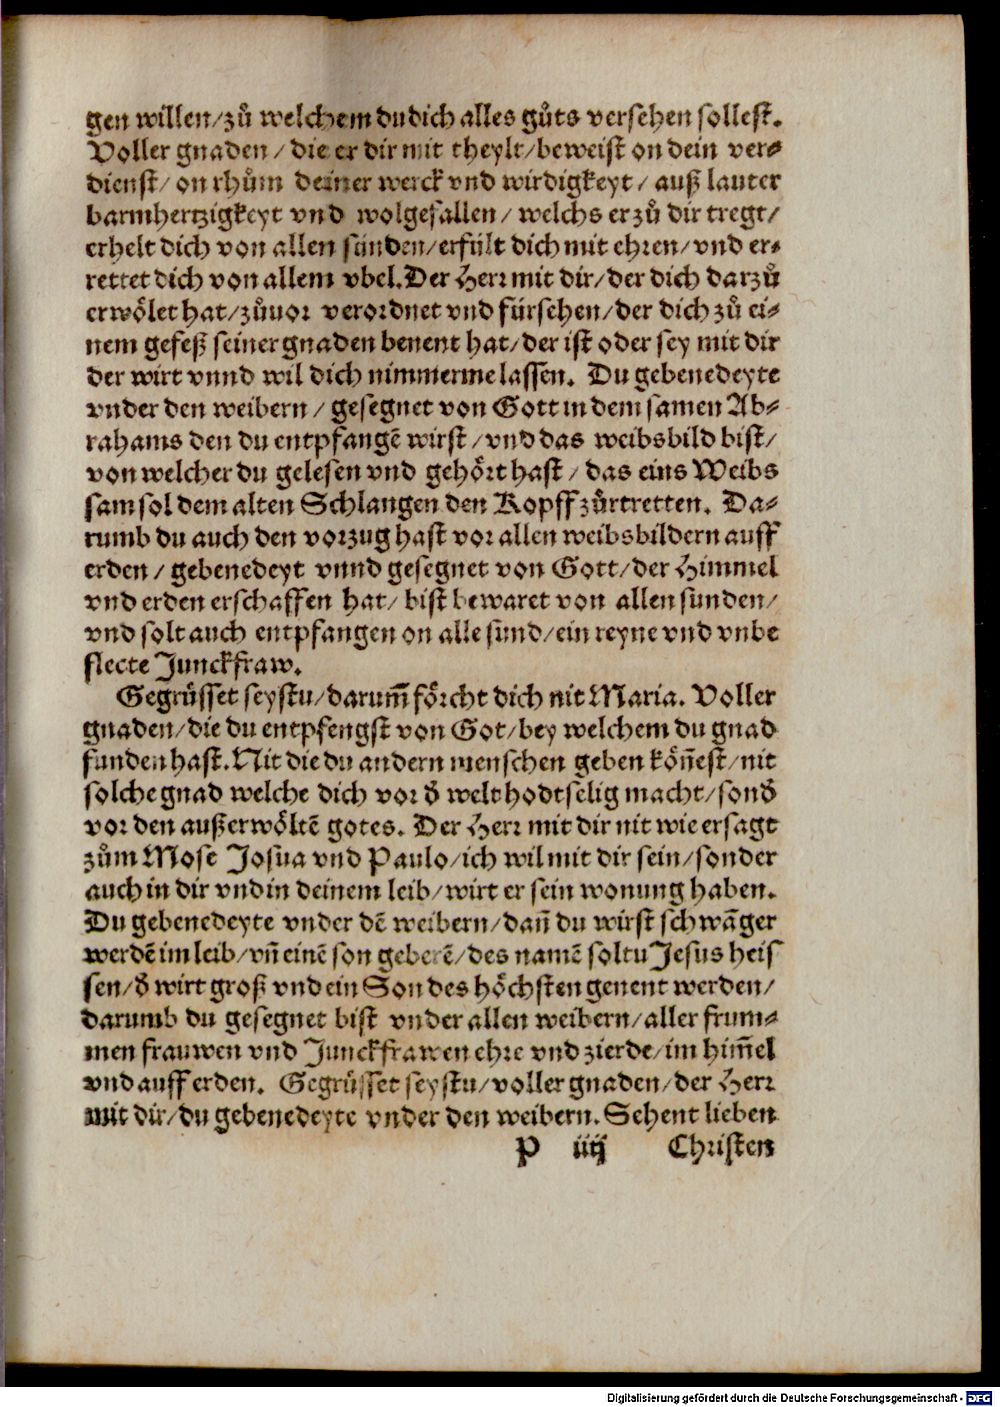 gen willen/zů welchem du dich alles gůts versehen sollest.
Voller gnaden/die er dir mit theylt/beweist on dein ver-
dienst/on rhům deiner werck vnd wirdigkeyt/auß lauter
barmhertzigkeyt vnd wolgefallen/welchs er zů dir tregt/
erhelt dich von allen sünden/erfült dich mit ehren/vnd er-
rettet dich von allem vbel. Der Herr mit dir/der dich darzů
erwölet hat/zůuor verordnet vnd fürsehen/der dich zů ei-
nem gefeß seiner gnaden benent hat/der ist oder sey mit dir
der wirt vnnd wil dich nimmerme lassen. Du gebenedeyte
vnder den weibern/gesegnet von Gott in dem samen Ab-
rahams den du entpfangē wirst/vnd das weibsbild bist/
von welcher du gelesen vnd gehört hast/das eins Weibs
sam sol dem alten Schlangen den Kopff zůrtretten. Da-
rumb du auch den vorzug hast vor allen weibsbildern auff
erden/gebenedeyt vnnd gesegnet von Gott/der Himmel
vnd erden erschaffen hat/bist bewaret von allen sunden/
vnd solt auch entpfangen on alle sund/ein reyne vnd vnbe
flecte Junckfraw.
Gegrüsset seystu/darum̄ förcht dich nit Maria. Voller
gnaden/die du entpfengst von Got/bey welchem du gnad
funden hast. Nit die du andern menschen geben kön̄est/nit
solche gnad welche dich vor d̄ welt hodtselig macht/sond̄
vor den außerwöltē gotes. Der Herr mit dir nit wie er sagt
zům Mose Josua vnd Paulo/ich wil mit dir sein/sonder
auch in dir vnd in deinem leib/wirt er sein wonung haben.
Du gebenedeyte vnder dē weibern/dan̄ du wirst schwāger
werdē im leib/vn̄ einē son geberē/des namē soltu Jesus heis
sen/d̄ wirt groß vnd ein Son des höchsten genent werden/
darumb du gesegnet bist vnder allen weibern/aller frum-
men frauwen vnd Junckfrawen ehre vnd zierde/im him̄el
vnd auff erden. Gegrüsset seystu/voller gnaden/der Herr
mit dir/du gebenedeyte vnder den weibern. Sehent lieben
P iiij Christen
Digitalisierung gefördert durch die Deutsche Forschungsgemeinschaft - DFG